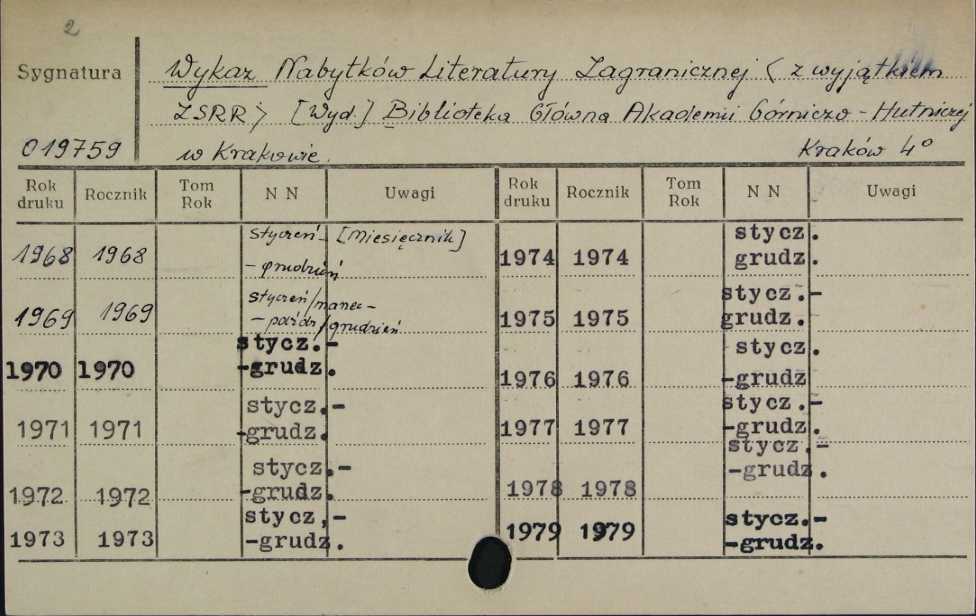 2
Sygnatura
Wykaz Nabytków Literatury Zagranicznej (z wyjątkiem
ZSRR) [Wyd.] Biblioteka Główna Akademii Górniczo-Hutniczej
019759 w Krakowie. Kraków 4°
Rok druku Rocznik Tom Rok N N Uwagi Rok druku Rocznik Tom Rok N N Uwagi
1968 1968 styczeń- [Miesięcznik]
-grudzień
1969 1969 styczeń/marzec-
-paźdz/grudzień
1970 1970 stycz.-
-grudz.
1971 1971 stycz.-
-grudz.
1972 1972 stycz.-
-grudz.
1973 1973 stycz,-
-grudz.
1974 1974 stycz.
grudz.
1975 1975 stycz.-
grudz.
1976 1976 stycz.
-grudz
1977 1977 stycz.-
-grudz.
1978 1978 stycz.-
-grudz.
1979 1979 stycz.-
-grudz.